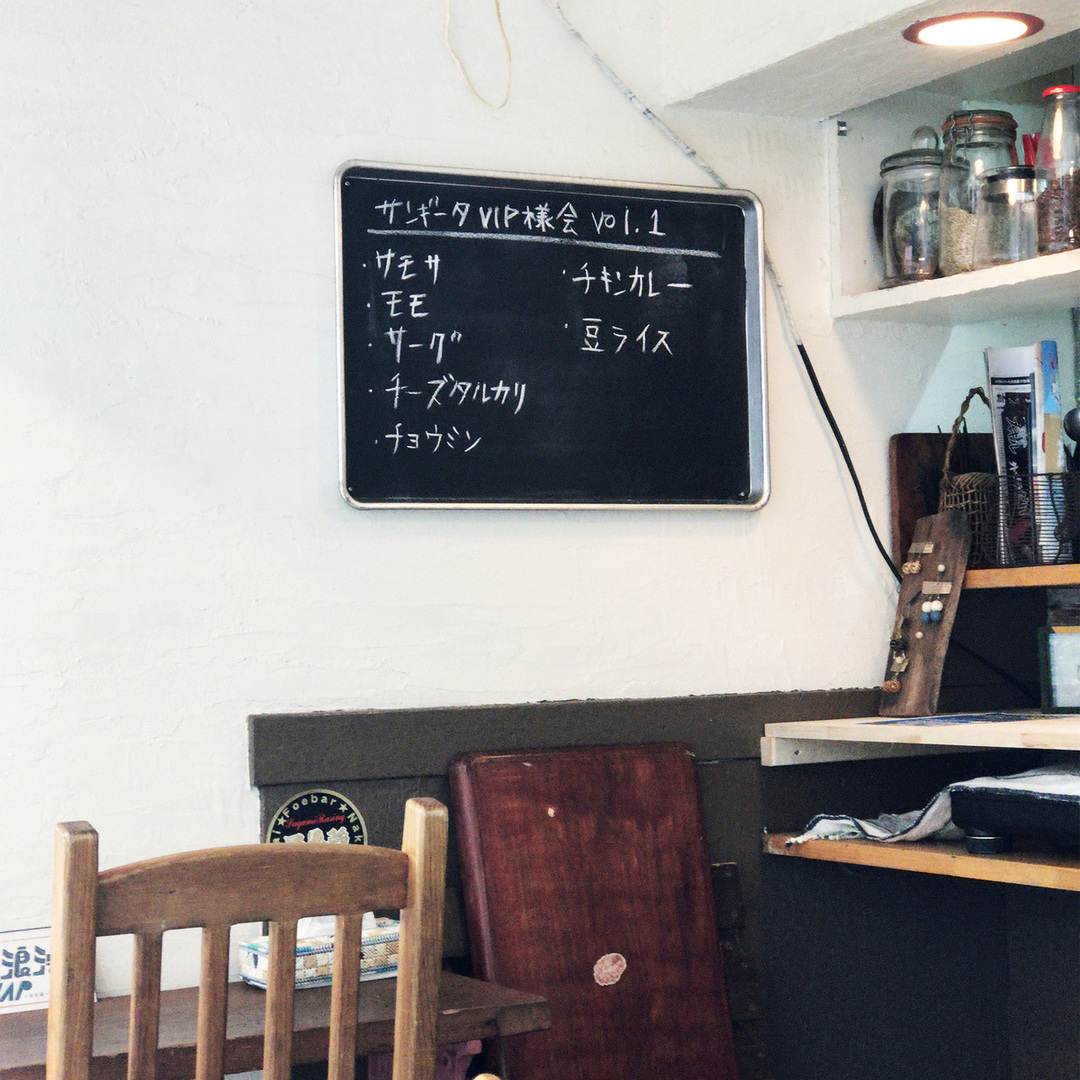 サンギータVIP様会 vol.1
・サモサ
・モモ
・サーグ
・チーズタルカリ
・チョウミン
・チキンカレー
・豆ライス
★Foebar★Nak